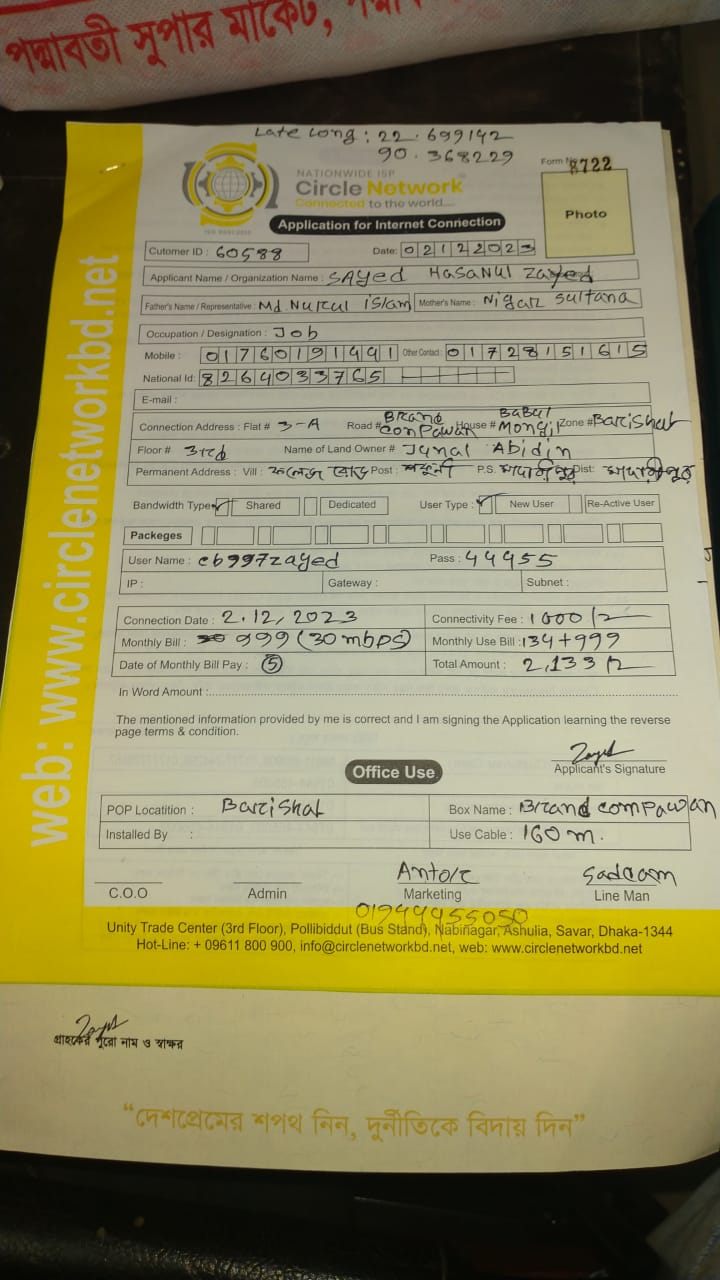 পদ্মাবতী সুপার মার্কেট,
Late Long : 22.699142
90.368229
NATIONWIDE ISP
Circle Network
Connected to the world....
Form No 8722
Photo
Application for Internet Connection
Cutomer ID : 60588 Date: 02122023
Applicant Name / Organization Name : SAyed Hasanul Zayed
Father's Name / Representative : Md. Nurul islam Mother's Name : Nigar Sultana
Occupation / Designation : Job
Mobile : 01760191491 Other Contact : 01728151615
National Id: 8264033765
E-mail :
Connection Address : Flat # 3-A Road # Brand Conpawan House # BaBul Monjil Zone # Barishal
Floor # 3rd Name of Land Owner # Jynal Abidin
Permanent Address : Vill : কলেজ রোড Post : P.S. মাদারীপুর Dist: মাদারীপুর
Bandwidth Type Shared Dedicated User Type : New User Re-Active User
Packeges
User Name : cb997zayed Pass : 44955
IP : Gateway : Subnet :
Connection Date : 2.12,2023 Connectivity Fee : 1000/2
Monthly Bill : 999 (30 mbps) Monthly Use Bill : 134+999
Date of Monthly Bill Pay : 5 Total Amount : 2,133/2
In Word Amount :
The mentioned information provided by me is correct and I am signing the Application learning the reverse
page terms & condition.
Zayed
Applicant's Signature
Office Use
POP Locatition : Barishal Box Name : Brand compawan
Installed By : Use Cable : 160 m.
Antor Sadcam
C.O.O Admin Marketing Line Man
01944455050
Unity Trade Center (3rd Floor), Pollibiddut (Bus Stand), Nabinagar, Ashulia, Savar, Dhaka-1344
Hot-Line: + 09611 800 900, info@circlenetworkbd.net, web: www.circlenetworkbd.net
web: www.circlenetworkbd.net
Zayed
গ্রাহকের পুরো নাম ও স্বাক্ষর
“দেশপ্রেমের শপথ নিন, দুর্নীতিকে বিদায় দিন”